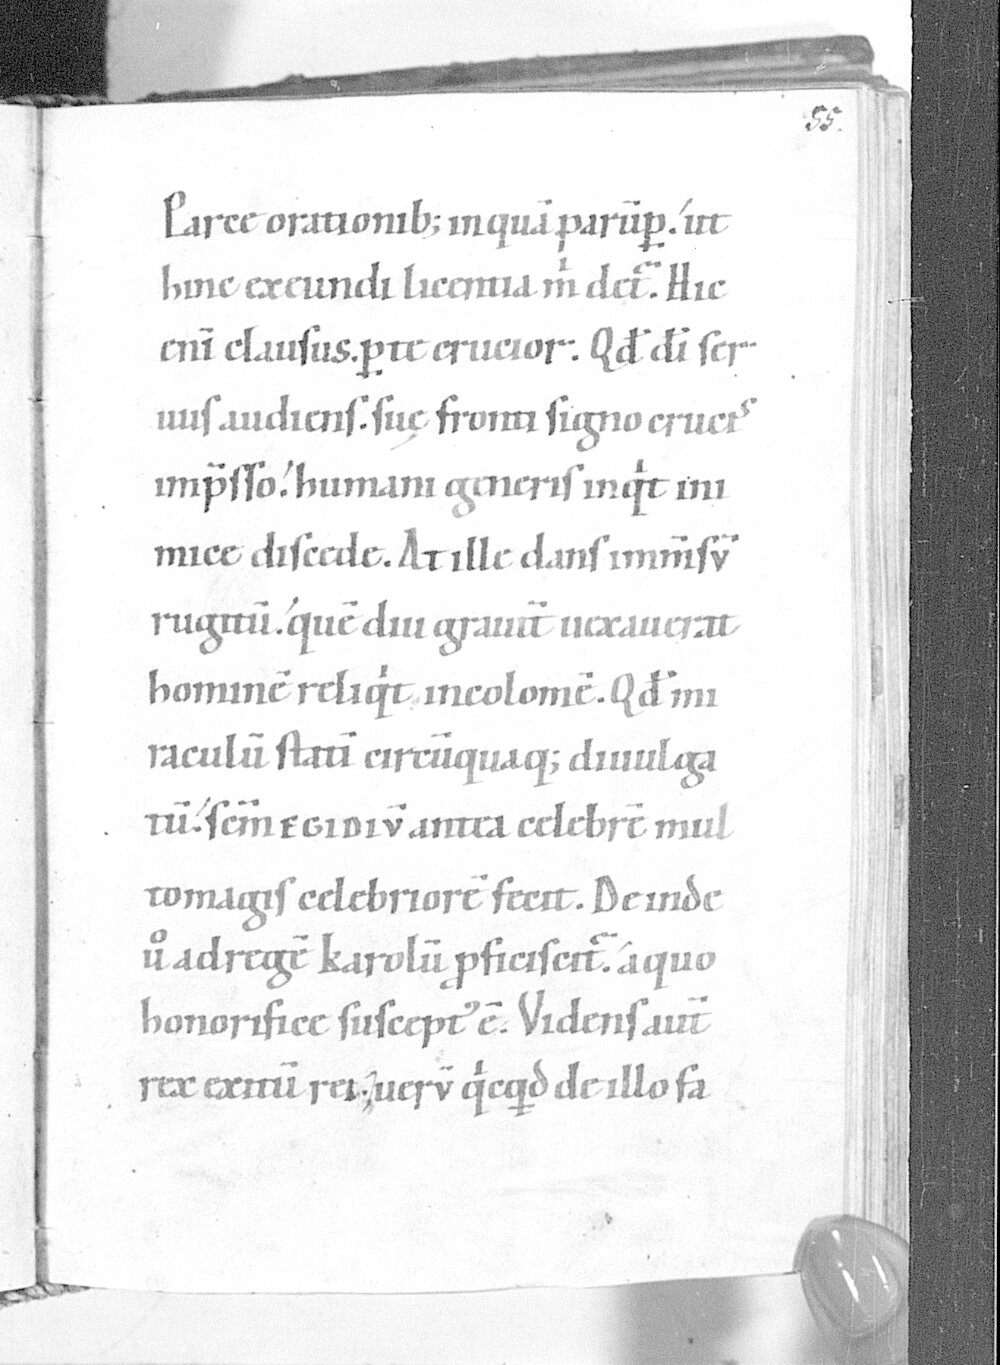 55.
Parce orationib; inquā parūꝑ. ut
hinc exeundi licentia m̍ det᷒. Hic
enī clausus. ꝑte crucior. Qd̄ dī ser-
uus audiens. suę fronti signo crucis
imp̄sso. humani generis inq̍t ini
mice discede. At ille dans imm̄sv̄
rugitū. quē diu grauit̄ uexauerat
hominē reliq̍t incolomē. Qd̄ mi
raculū statī circūquaq; diuulga
tū. sc̄m EGIDIV̄ antea celebrē mul
tomagis celebriorē fecit. Deinde
uͦ ad regē karolū ꝓficiscit᷒. a quo
honorifice suscept᾽ ē. Videns aut̄
rex exitū rei; uerv̄ q̍cq̣d de illo fa